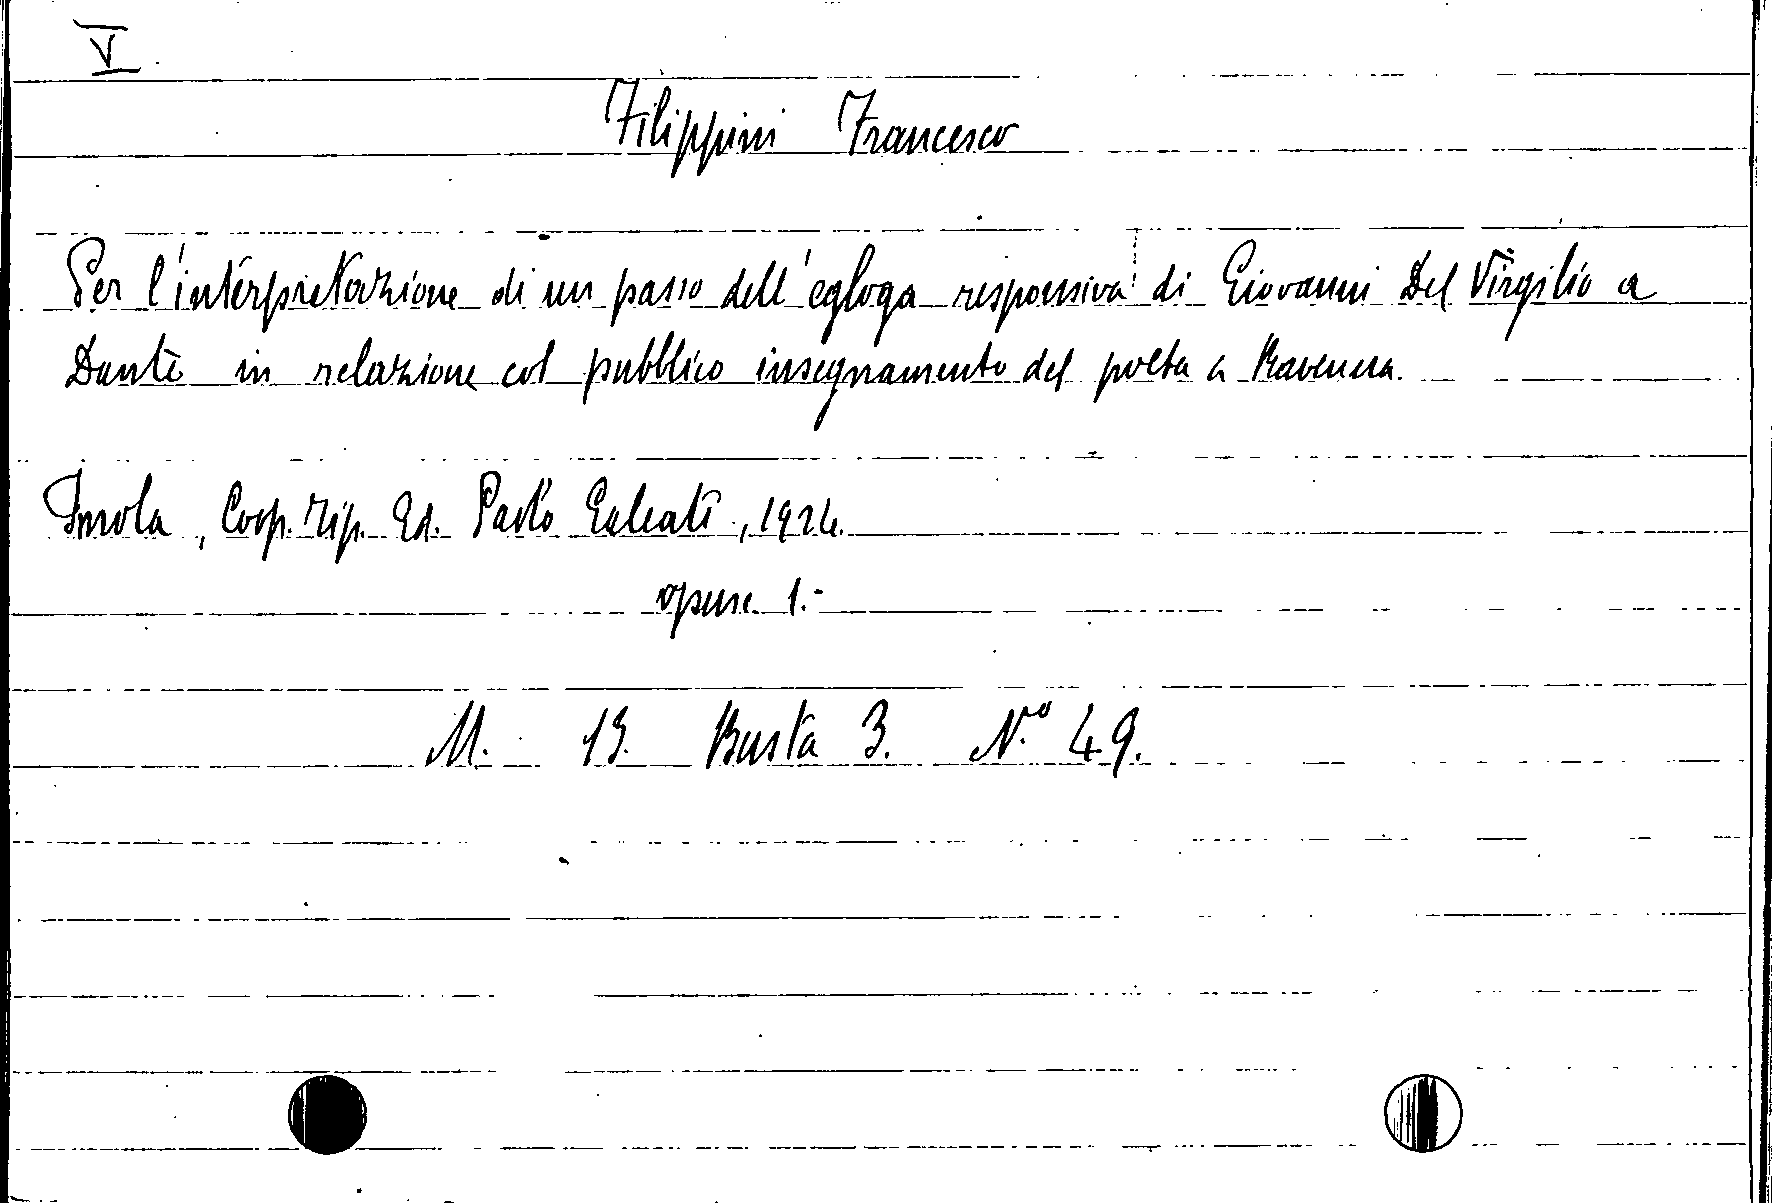 V
Filippini Francesco
Per l'interpretazione di un passo dell'egloga responsiva di Giovanni Del Virgilio a
Dante in relazione col pubblico insegnamento del poeta a Ravenna.
Imola, Coop. Tip. Ed. Paolo Galeati, 1924.
opusc. 1.-
M. 13. Busta 3. N.º 49.